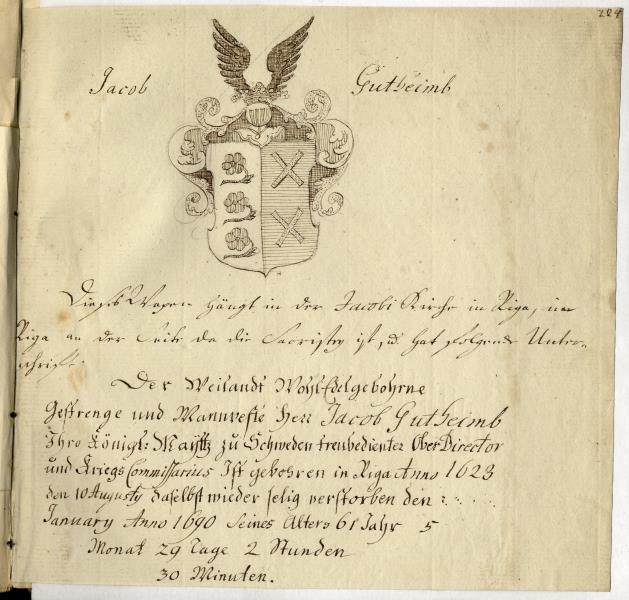 224
Jacob Gutheimb
Dieses Wapen hängt in der Jacobi Kirche in Riga, in
Riga an der Seite da die Sacristey ist, u. hat folgende Unter-
schrift.
Der Weilandt Wohl Edelgebohrne
Gestrenge und Mannveste Herr Jacob Gutheimb
Ihro Königl: Maÿttz zu Schweden treubedienter Ober Director
und Kriegs Commissarius Ist gebohren in Riga Anno 1623
den 10 Augusty daselbst wieder selig verstorben den :
January Anno 1690 Seines Alters 61 Jahr 5
Monat 29 Tage 2 Stunden
30 Minuten.